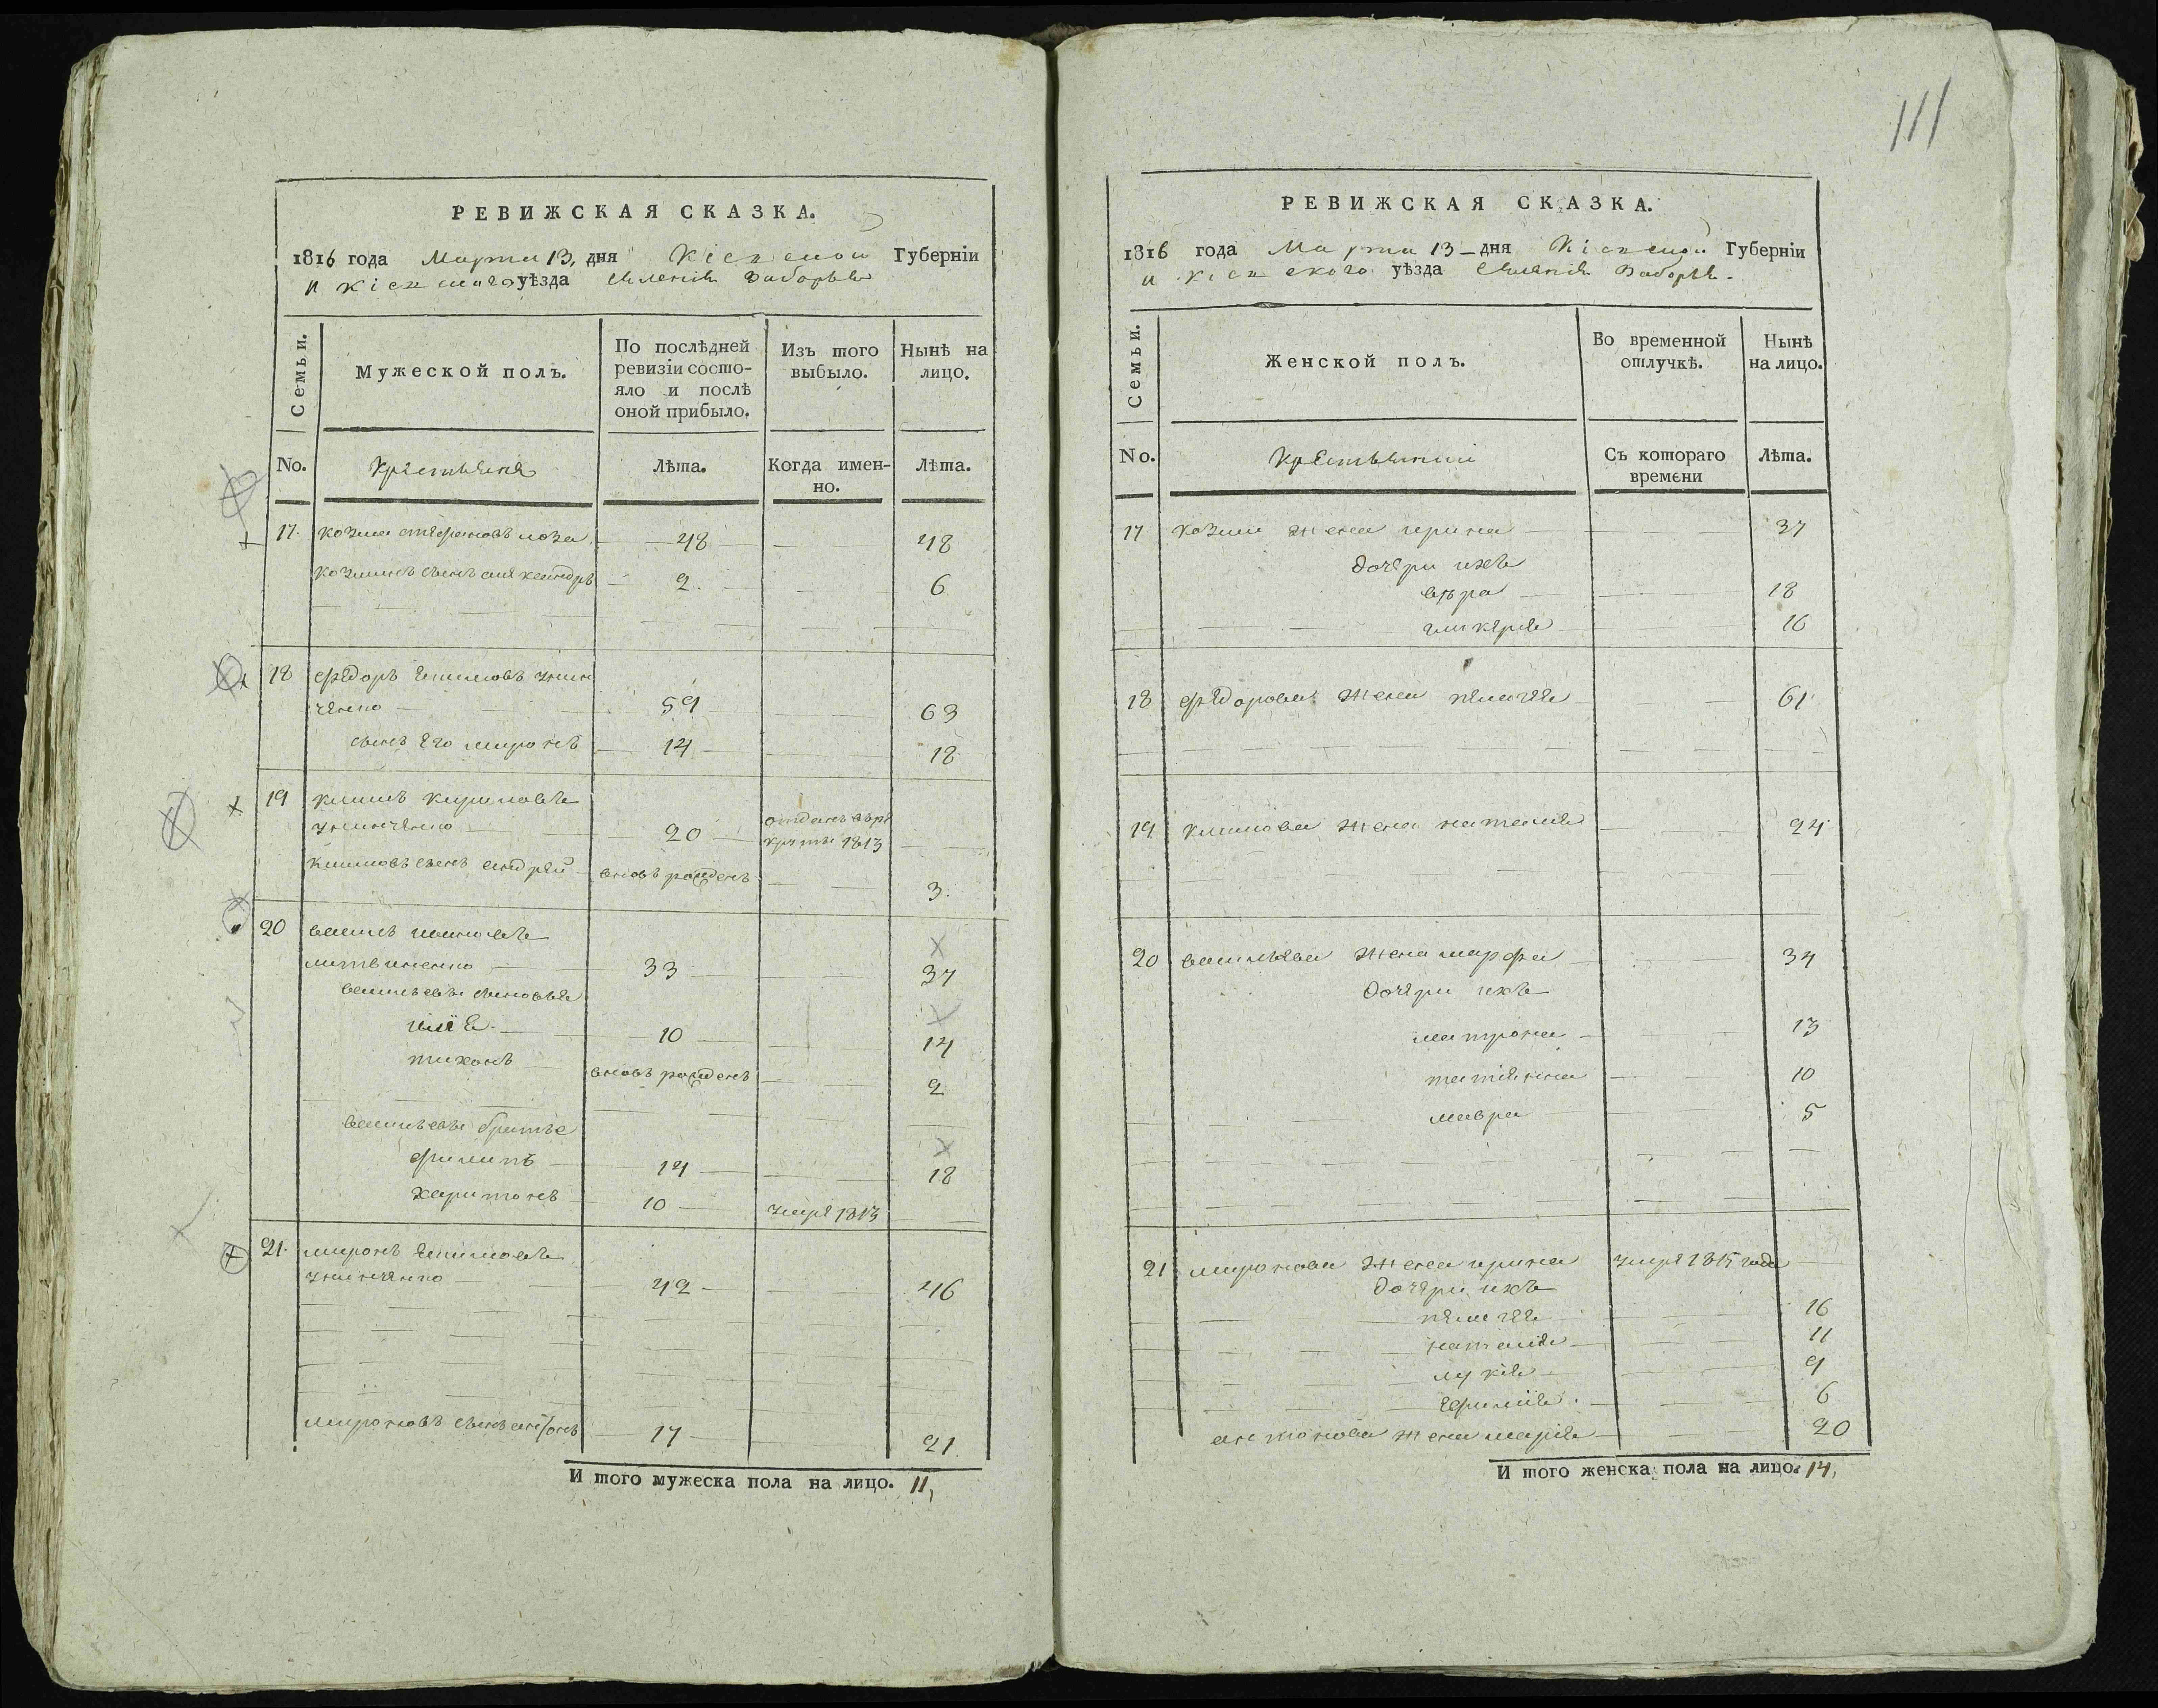 РЕВИЖСКАЯ СКАЗКА.
1816 года Марта 13, дня Кіевской Губерніи
и Кіевскаго уѣзда селенія Заборья
Семьи.
Мужеской полъ.
По послѣдней ревизіи состо-
яло и послѣ
оной прибыло.
Изъ того выбыло.
Нынѣ на лицо.
No.
Крестьяне
Лѣта.
Когда имен-
но.
Лѣта.
17. козма стефановъ 48 48
козминъ сынъ александръ 2. 6
18 федоръ екимовъ
59 63
сынъ его миронъ 14 18
19 климъ
20 отданъ въ ре
круты 1813
климовъ сынъ андрей вновъ рожденъ 3.
20 василь ивановъ
литвиненко 33 37
васильевы сыновья
илія 10 14
тихонъ вновъ рожденъ 2
васильевы братья
филипъ 14 18
харитонъ 10 умре 1813
21. миронъ екимовъ
42 46
мироновъ сынъ антонъ 17 21.
И того мужеска пола на лицо. 11,
111
РЕВИЖСКАЯ СКАЗКА.
1816 года Марта 13 дня Кіевской Губерніи
и кіевского уѣзда селенія Заборья.
Семьи.
Женской полъ.
Во временной отлучкѣ.
Нынѣ на лицо.
No.
Крестьянки
Съ котораго времени
Лѣта.
17 козми жена ирина 37
дочери ихъ
вѣра 18
гликерія 16
18 федорова жена пелагея 61
19 климова жена наталия 24
20 васильева жена марфа 34
дочери ихъ
матрона 13
татіянна 10
мавра 5
21 миронова жена ирина умре 1815 года
дочери ихъ
пелагея 16
наталія 11
лукія 9
ефимія. 6
антонова жена марія 20
И того женска пола на лицо. 14,